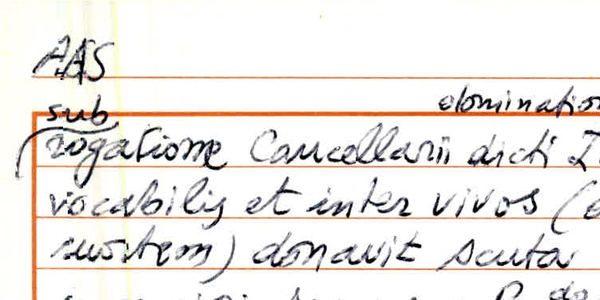 AAS
sub
domination
rogatione Cancellarii dicti
vocabilis et inter vivos (
mortem) donavit scuta